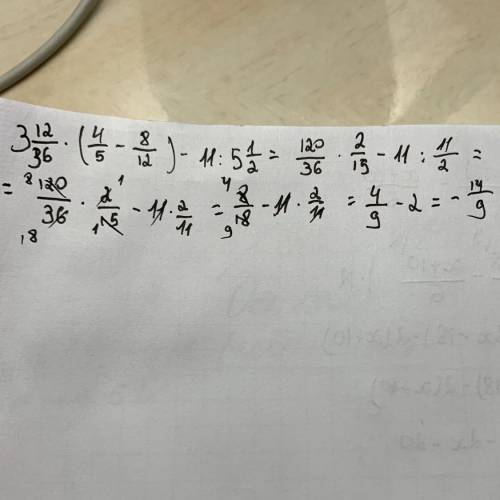 3 12/36 · (4/5 - 8/12) - 11 : 5 1/2 = 120/36 · 2/15 - 11 : 11/2 =
= 8 120/36 18 · 2 1/15 1 - 11 · 2/11 = 4 8/18 9 - 11 · 2/11 = 4/9 - 2 = - 14/9